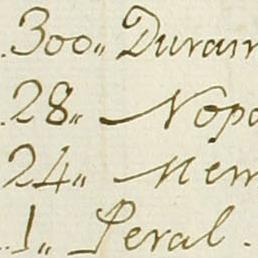 300,, Duraz
28,, Nopa
24,, Mem
1,, Peral.